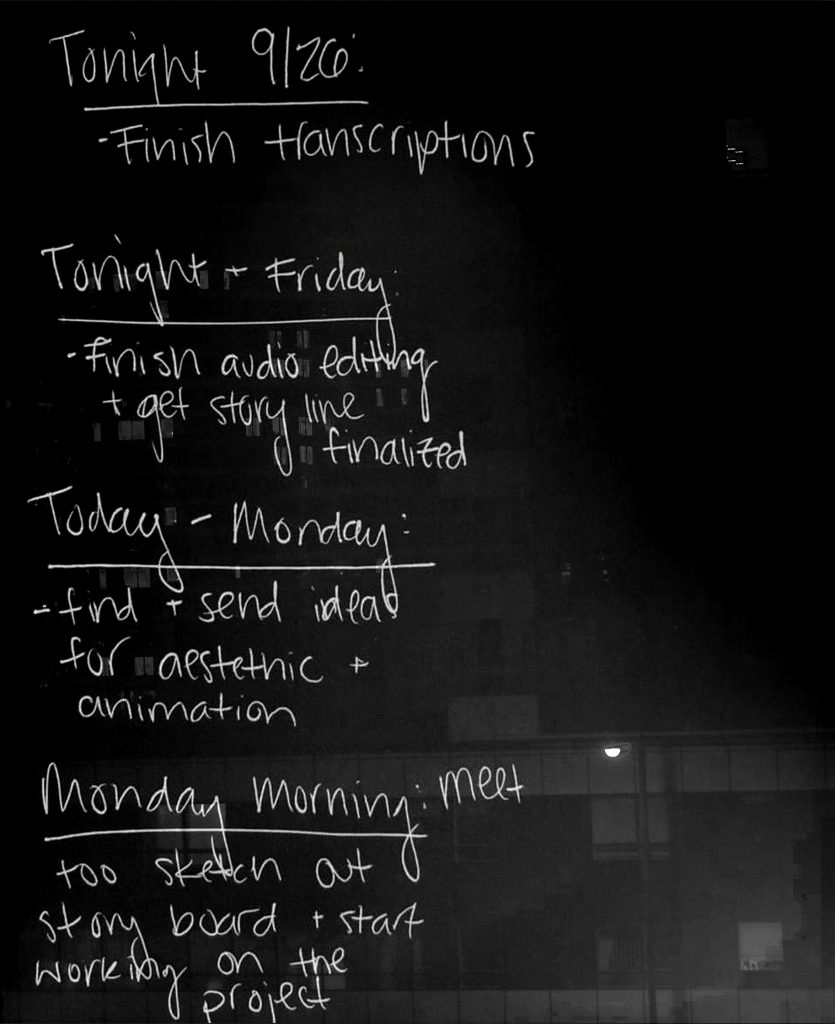 Tonight 9/26:
-Finish transcriptions
Tonight + Friday:
-finish audio editing
+ get story line
finalized
Today - Monday:
-find + send ideas
for aestethic +
animation
Monday Morning: meet
too sketch out
story board + start
working on the
project